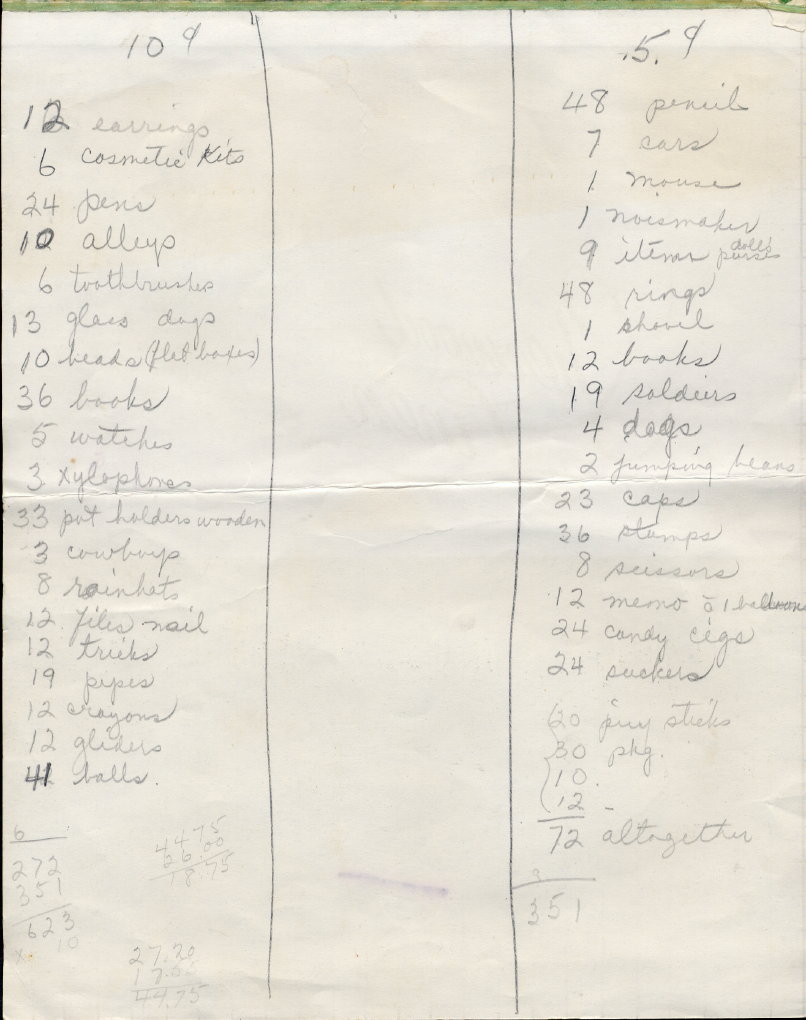 10¢
12 earrings
6 cosmetic Kits
24 pens
10 alleys
6 toothbrushes
13 glass dogs
10 beads (flat boxes)
36 books
5 watches
3 xylophones
33 pot holders wooden
3 cowboys
8 rainhats
12 files nail
12 tricks
19 pipes
12 crayons
12 gliders
41 balls.
6
272
351
623
x 10
44.75
26.00
18.75
27.20
17.55
44.75
.5.¢
48 pencil
7 cars
1 mouse
1 noismaker
9 items dolls purses
48 rings
1 shovel
12 books
19 soldiers
4 dogs
2 jumping beans
23 caps
36 stamps
8 scissors
12 memo c̄ 1 balloons
24 candy cigs
24 suckers
20 sticks
30 pkg.
10.
12 -
72 altogether
9
351